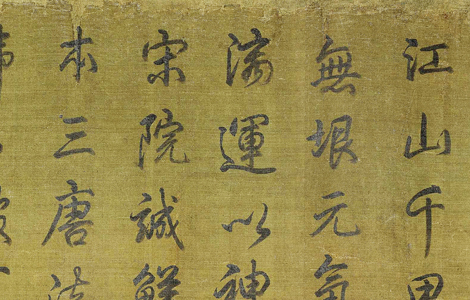 江山千里
無垠元氣
漓運以神
宋院誠鮮
本三唐法